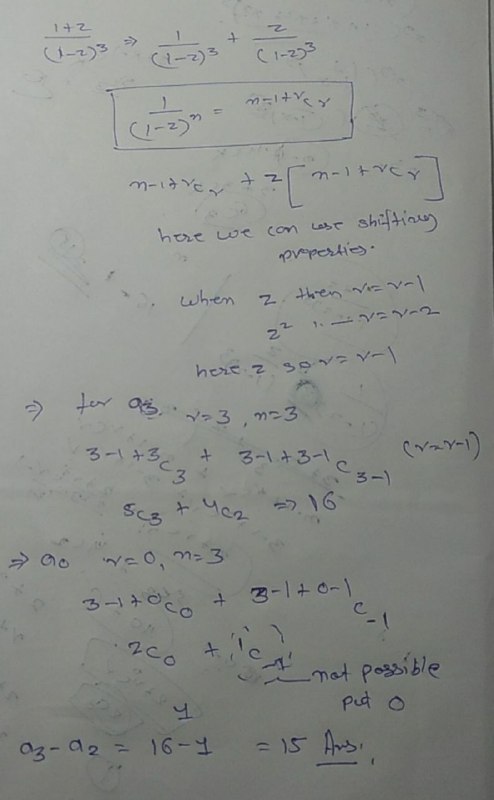 1+z/(1-z)³ ⇒ 1/(1-z)³ + z/(1-z)³
1/(1-z)ⁿ = n-1+rCr
n-1+rCr + z[n-1+rCr]
here we can use shifting
properties.
when z then r=r-1
z² " — r=r-2
here z so r=r-1
⇒ for a3. r=3, n=3
3-1+3C3 + 3-1+3-1C3-1 (r=r-1)
5C3 + 4C2 => 16
⇒ a0 r=0, n=3
3-1+0C0 + 3-1+0-1C-1
2C0 + 1C-1 — not possible
put 0
1
a3-a2 = 16-1 = 15 Ans.